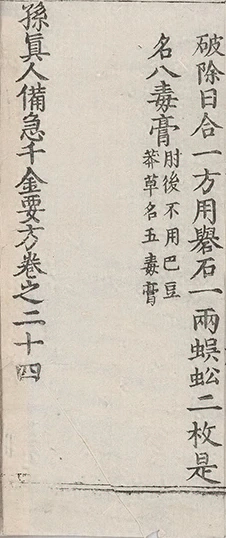 破除日合一方用礜石一兩蜈蚣二枚是
名八毒膏肘後不用巴豆
莽草名五毒膏
孫眞人備急千金要方卷之二十四